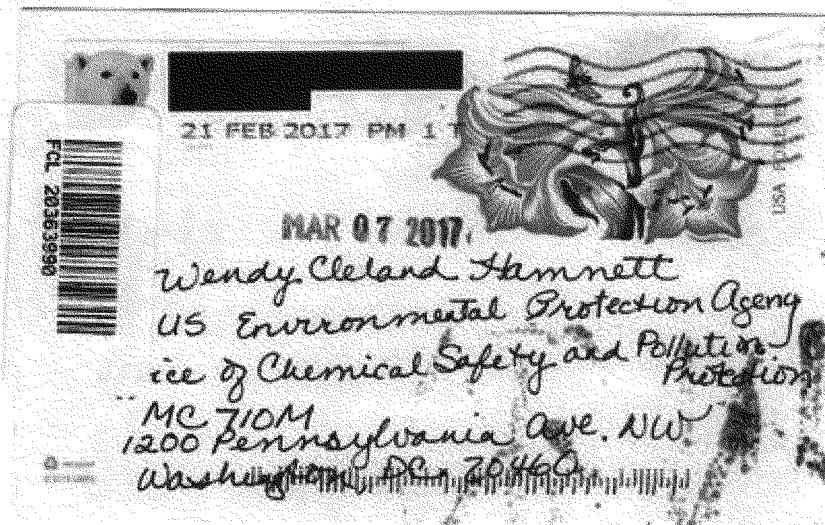 21 FEB 2017 PM 1 T
FCL 20363990
USA
MAR 07 2017
Wendy Cleland Hamnett
US Environmental Protection Ageny
ice of Chemical Safety and Pollution
Protection
MC 710M
1200 Pennsylvania Ave. NW
Washington, DC 20460